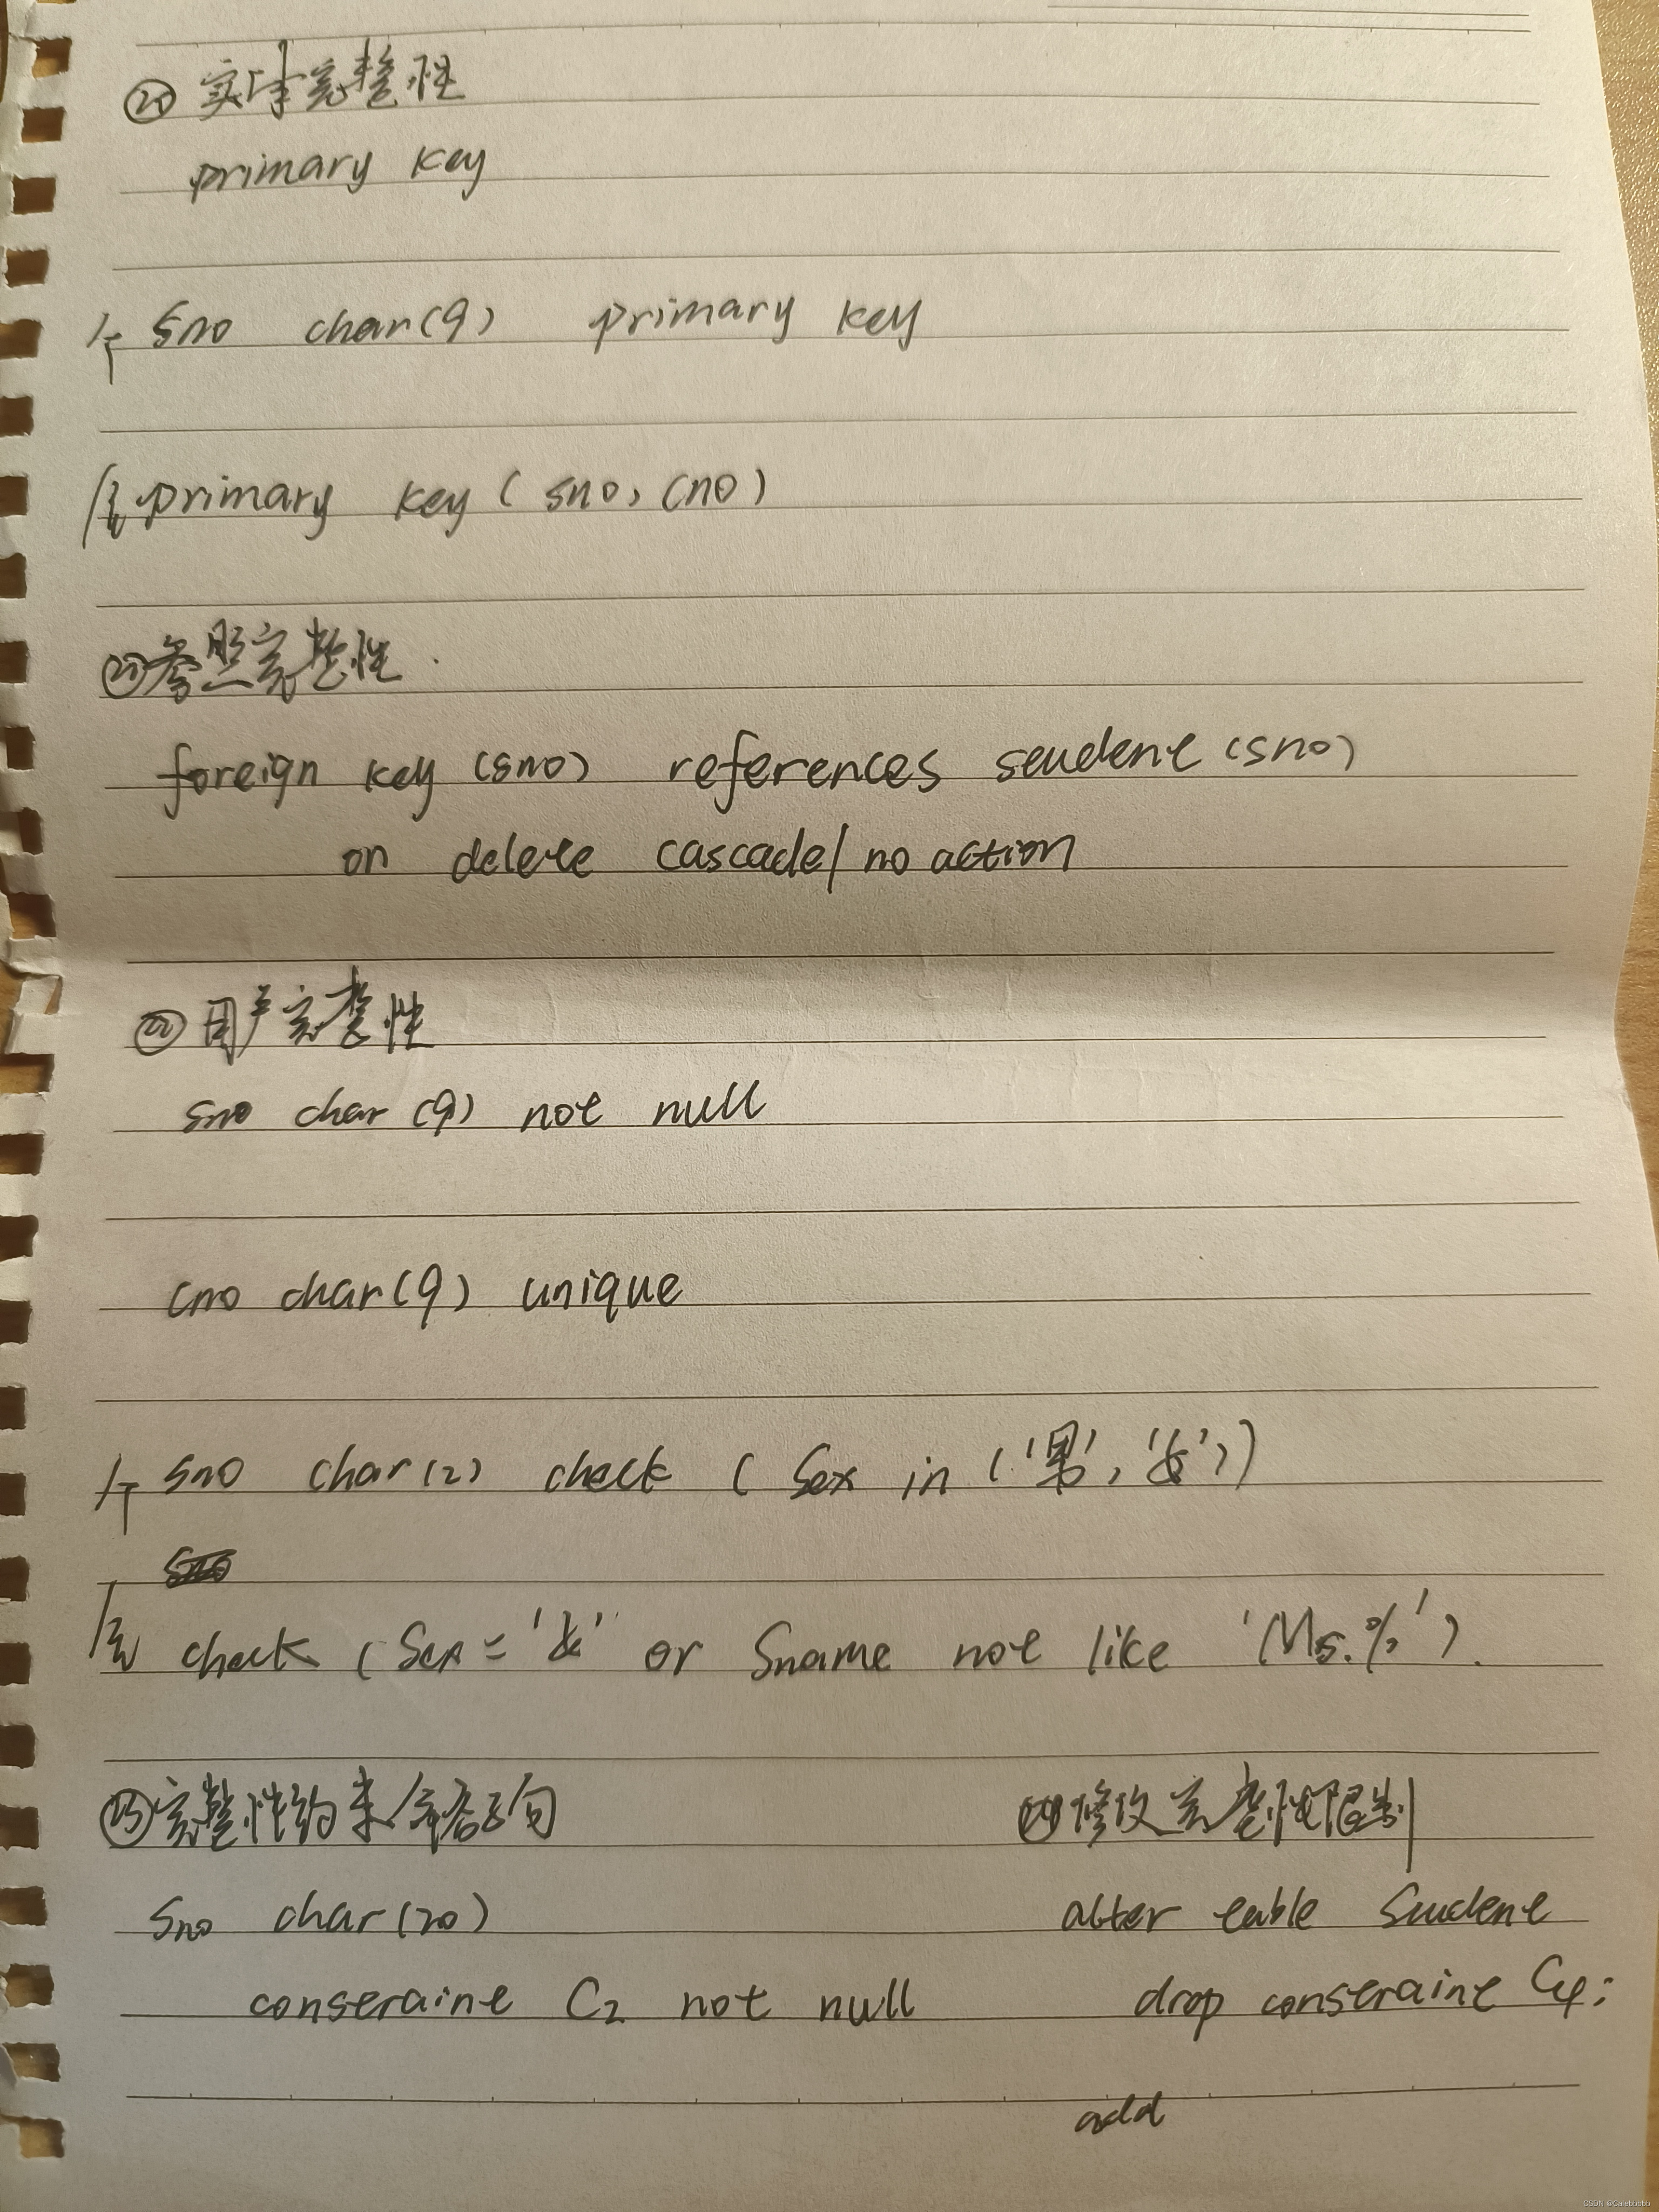 ⑳ 实体完整性
primary key
sno char(9) primary key
primary key (sno, cno)
㉑ 参照完整性
foreign key (sno) references student (sno)
on delete cascade/ no action
㉒ 用户完整性
sno char (9) not null
cno char(9) unique
sno char(2) check ( Sex in ('男', '女'))
check (Sex = '女' or Sname not like 'Ms.%').
㉓ 完整性约束命名子句
sno char(20)
constraint C2 not null
㉔ 修改完整性限制
alter table Student
drop constraint C4;
add
CSDN @Calebbbbb